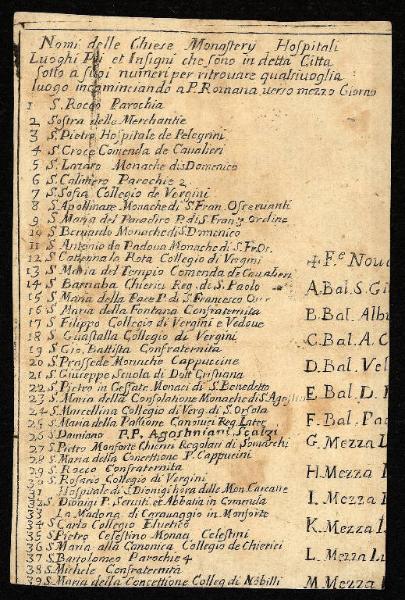 Nomi delle Chiese Monastery Hospitali
Luoghi Pii et Insigni che sono in detta Citta
sotto a suoi numeri per ritrovare qualsivoglia
luogo incominciando a P. Romana verso mezzo Giorno
1 S. Rocco Parochia
2 Sostra delle Merchantie
3 S. Pietro Hospitale de Pelegrini
4 S. Croce Comenda de Cavalieri
5 S. Lazaro Monache di S Domenico
6 S. Calimero Parochie 2
7 S. Sofia Collegio de Vergini
8 S. Apollinare Monache di S. Fran. Osservanti
9 S. Maria del Paradiso P. di S. Franc. Ordine
10 S. Bernardo Monache di S. Domenico
11 S. Antonio da Padova Monache di S. Fr. Os.
12 S. Catterina la Rota Collegio di Vergini
13 S. Maria del Tempio Comenda de Cavalieri
14 S. Barnaba Chierici Reg. di S. Paolo
15 S. Maria della Pace P. di S. Francesco Oss.
16 S. Maria della Fontana Confraternita
17 S. Filippo Collegio di Vergini e Vedove
18 S. Guastalla Collegio di Vergini
19 S. Gio. Battista Confraternita
20 S. Prassede Monache Cappuccine
21 S. Giuseppe Scuola di Dott Cristiana
22 S. Pietro in Gessate Monaci di S. Benedetto
23 S. Maria della Consolatione Monache di S. Agostin
24 S. Marcellina Collegio di Verg. di S. Orsola
25 S. Maria della Passione Canonici Reg. Latter
26 S. Damiano P. P. Agostiniani Scalzi
27 S. Pietro Monforte Chierici Regolari di Somaschi
28 S. Maria della Concettione P. Cappucini
29 S. Rocco Confraternita
30 S. Rosario Collegio di Vergini
31 Hospitale di S. Dionigi hora delle Mon. Carcane
32 S. Dionigi P. Serviti et Abbatia in Comenda
33 La Madona di Caravaggio in Monforte
34 S. Carlo Collegio Elvetico
35 S. Pietro Celestino Monaci Celestini
36 S. Maria alla Canonica Collegio de Chierici
37 S. Bartolomeo Parochie 4
38 S. Michele Confraternita
39 S. Maria della Concettione Colleg. di Nobili
✠ F.e Nou
A. Bal. S. Gi
B. Bal. Albi
C. Bal. A. C
D. Bal. Vel
E Bal. D. F
F. Bal. Pa
G. Mezza L
H. Mezza
I. Mezza
K. Mezza L
L. Mezza Lu
M Mezza